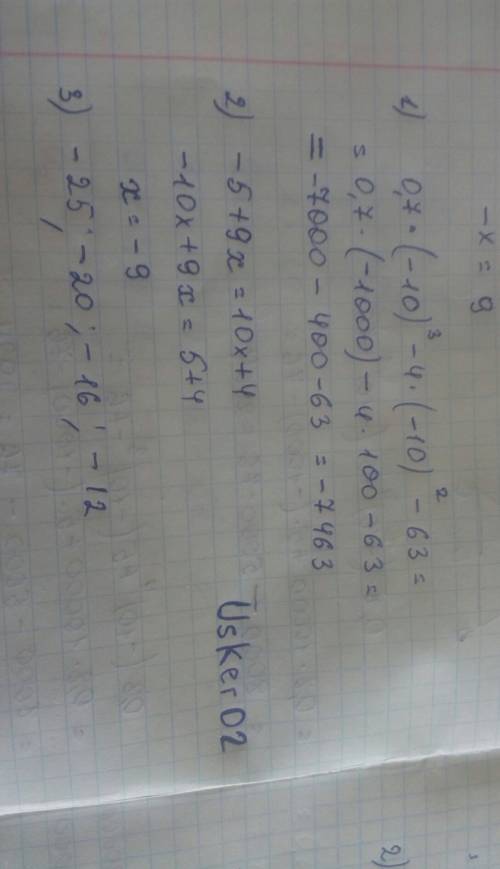 -x = 9
1) 0,7 · (-10)³ - 4 · (-10)² - 63 =
= 0,7 · (-1000) - 4 · 100 - 63 =
= -7000 - 400 - 63 = -7463
2) -5 + 9x = 10x + 4
-10x + 9x = 5 + 4
x = -9
3) -25; -20; -16; -12
Usker02
2)